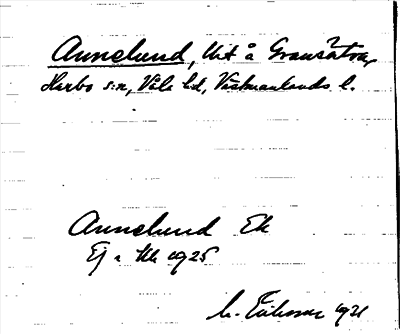 Annelund, Uti å Gransätra,
Harbo s:n, Våla hd, Västmanlands l.
Annelund Ek
Ej i 1925
1921